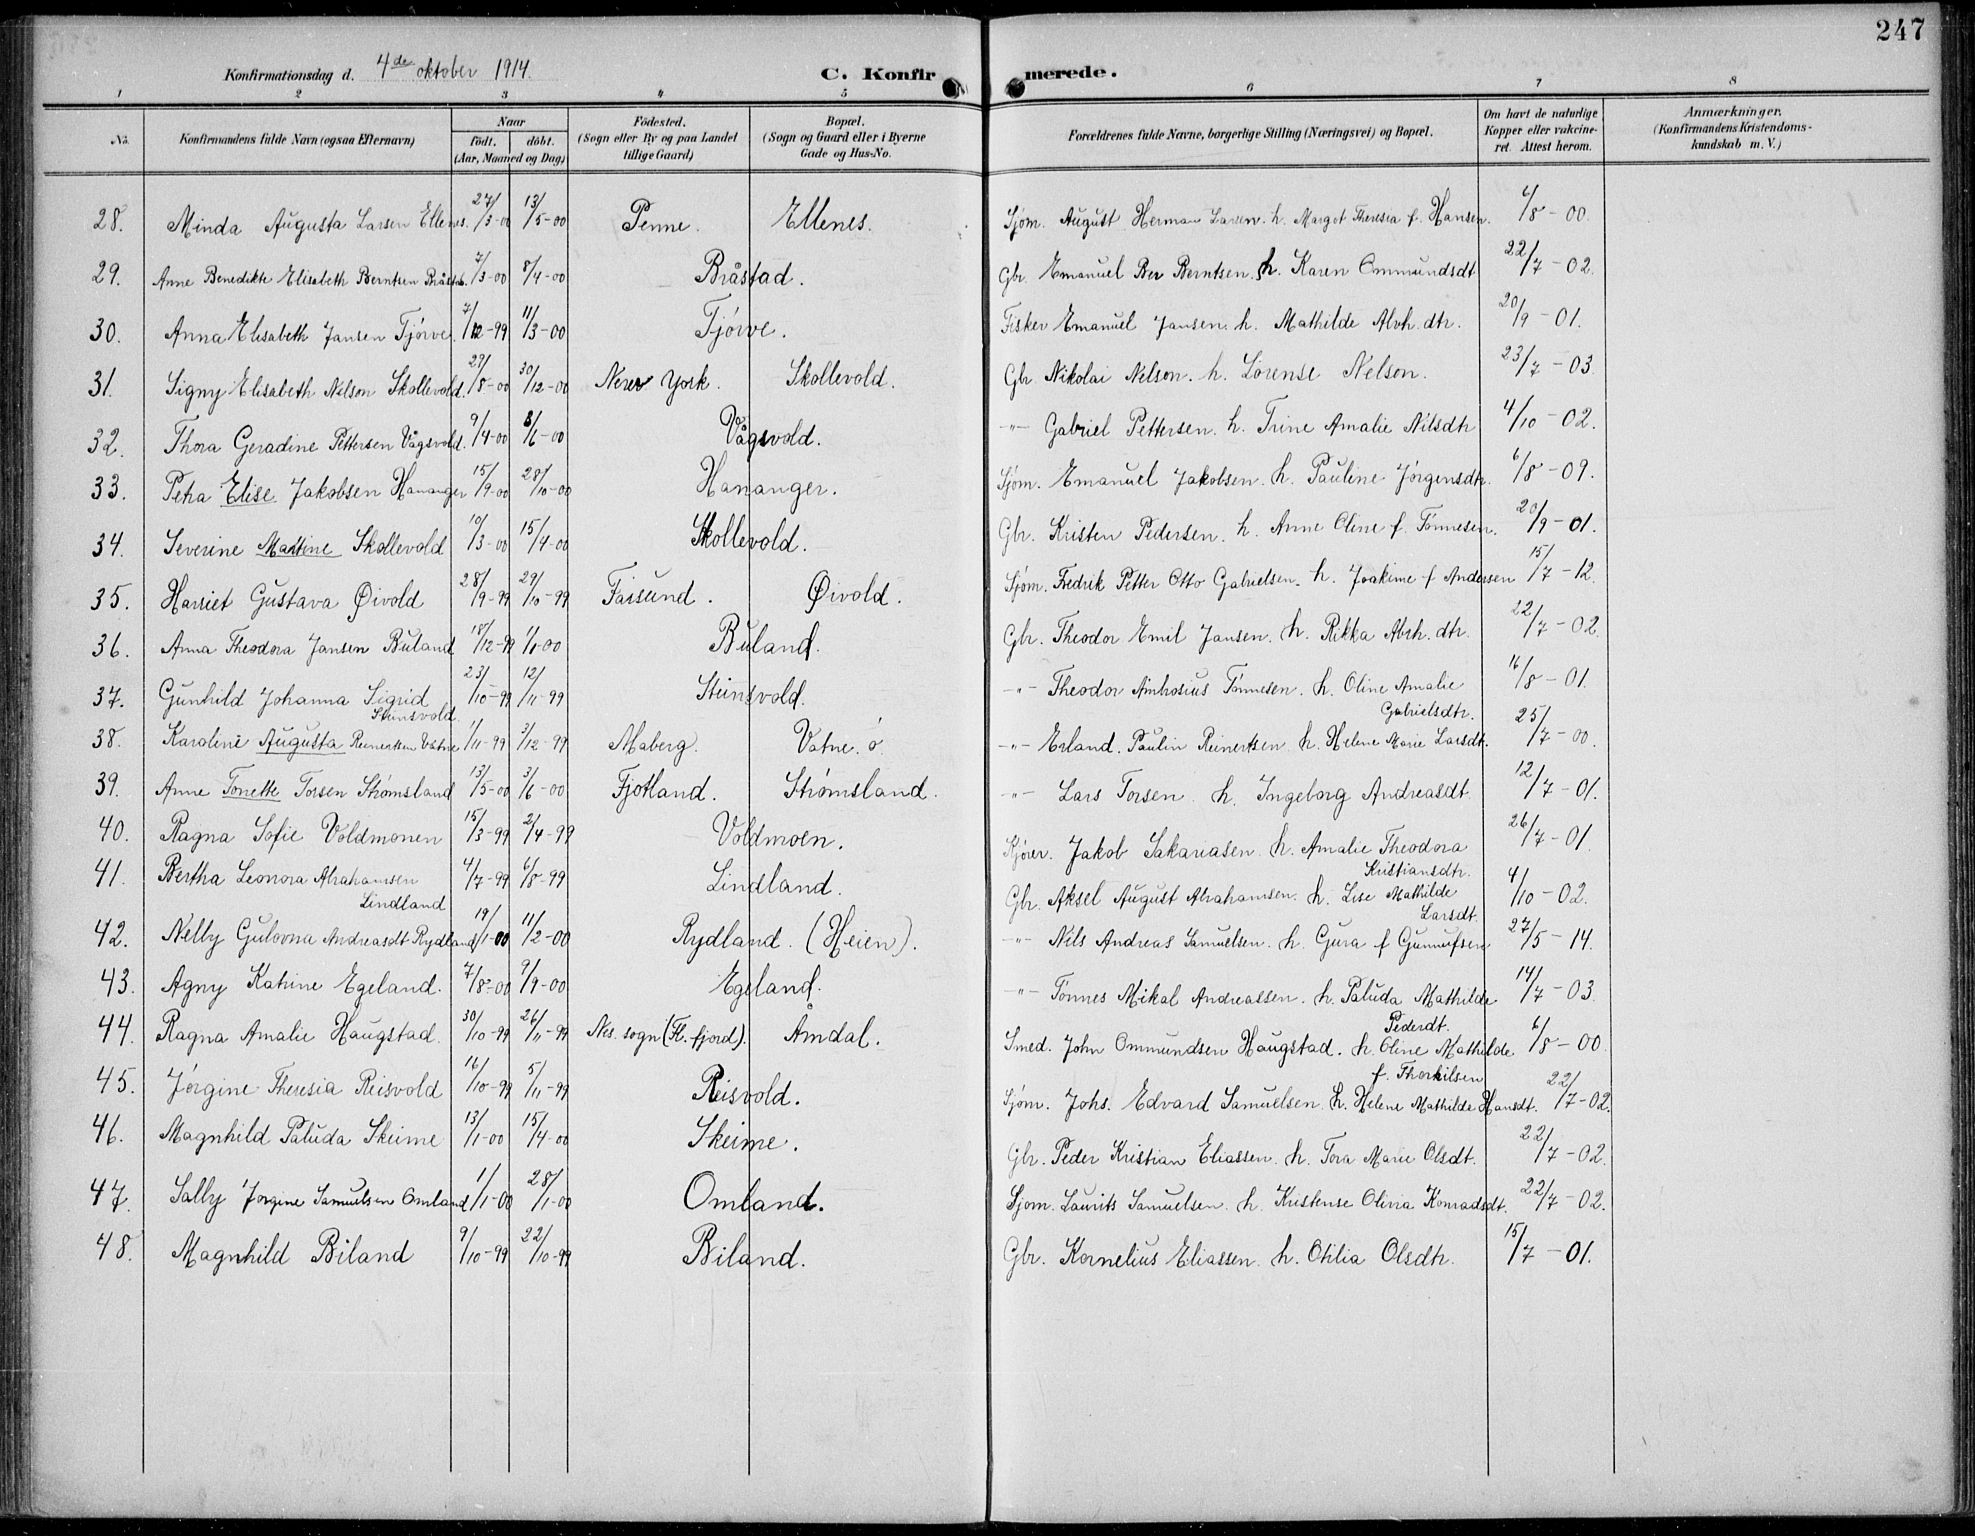 247
Konfirmationsdag d. 4de oktober 1914. C. Konfirmerede.
1 2 3 4 5 6 7 8
No. Konfirmandens fulde Navn (ogsaa Efternavn) Naar födt. döbt. (Aar, Maaned og Dag) Födested. (Sogn eller By og paa Landet tillige Gaard) Bopæl. (Sogn og Gaard eller i Byerne Gade og Hus-No. Forældrenes fulde Navne, borgerlige Stilling (Næringsvei) og Bopæl. Om havt de naturlige Kopper eller vakcineret. Attest herom. Anmærkninger. (Konfirmandens Kristendomskundskab m. V.)
28. Minda Augusta Larsen Ellenes. 27/3-00 13/5-00 Penne. Ellenes. Sjøm. August Herman Larsen. h. Margot Theresia f. Hansen. 6/8-00.
29. Anne Benedikte Elisabeth Berntsen Bråstad. 7/3-00 8/4-00 Bråstad. Gbr. Emanuel Ber Berntsen. h. Karen Ommundsdt. 22/7-02.
30. Anna Elisabeth Jansen Tjörve. 7/12-99 11/3-00 Tjörve. Fisker Emanuel Jansen. h. Mathilde Abrh. dtr. 20/9-01.
31. Signy Elisabeth Nelson Skollevold. 29/8-00 30/12-00 New York. Skollevold. Gbr. Nikolai Nelson. h. Lorense Nelson. 23/7-03.
32. Thora Geradine Pettersen Vågsvold. 9/4-00 8/6-00 Vågsvold. -"- Gabriel Pettersen. h. Trine Amalie Nilsdtr 4/10-02.
33. Petra Elise Jakobsen Hananger 15/9-00 28/10-00 Hananger. Sjøm. Emanuel Jakobsen. h. Pauline Jörgensdtr. 6/8-09.
34. Severine Martine Skollevold 10/3-00 15/4-00 Skollevold. Gbr. Kristen Pedersen. h. Anne Oline f. Tönnesen. 20/9-01.
35. Harriet Gustava Øivold 28/9-99 29/10-99 Farsund. Øivold. Sjøm. Fredrik Petter Otto Gabrielsen. h. Joakime f Andersen 15/7-12.
36. Anna Theodora Jansen Buland 18/12-99 1/1-00 Buland. Gbr. Theodor Emil Jansen. h. Rikka Abrh. dtr. 22/7-02.
37. Gunhild Johanna Sigrid 23/10-99 12/11-99 Stensvold. -"- Theodor Ambrosius Tönnesen. h. Oline Amalie 16/8-01.
Stunsvold. Gabrielsdtr.
38. Karoline Augusta Reinertsen Vatne 1/11-99 3/12-99 Maberg. Vatne. ö -"- Erland Paulin Reinertsen h. Helene Marie Larsdt. 25/7-00.
39. Anne Tonette Torsen Strømsland 13/5-00 3/6-00 Fjotland. Strømsland. -"- Lars Torsen. h. Ingeborg Andreasdt. 12/7-01.
40. Ragna Sofie Voldmonen 15/3-99 2/4-99 Voldmoen. Kjörer. Jakob Sakariasen h. Amalie Theodora 26/7-01.
Kristiansdtr.
41. Bertha Leonora Abrahamsen 4/7-99 6/8-99 Lindland. Gbr. Aksel August Abrahamsen. h. Lise Mathilde 4/10-02.
Lindland Larsdt.
42. Nelly Gulovna Andreasdt Rydland 19/1-00 11/2-00 Rydland. (Heien). -"- Nils Andreas Samuelsen. h. Gura f Gunnufsen 27/5-14.
43. Agny Katrine Egeland. 7/8-00 9/9-00 Egeland. -"- Tönnes Mikal Andreassen. h. Paluda Mathilde 14/7-03.
Pederdt.
44. Ragna Amalie Haugstad. 30/10-99 26/11-99 Nes. sogn (Fl. fjord). Åmdal. Smed. John Ommundsen Haugstad. h. Oline Mathilde. 6/8-00.
f. Thorkilsen
45. Jörgine Theresia Reisvold 16/10-99 5/11-99 Reisvold. Sjøm. Johs. Edvard Samuelsen. h. Helene Mathilde Hansdt. 22/7-02.
46. Magnhild Paluda Skeime 13/1-00 15/4-00 Skeime. Gbr. Peder Kristian Eliassen. h. Tora Marie Olsdt. 22/7-02.
47. Sally Jorgine Samuelsen Omland 1/1-00 28/1-00 Omland. Sjom. Laurits Samuelsen. h. Kristense Olivia Konradsdt. 22/7-02.
48. Magnhild Biland 9/10-99 22/10-99 Biland. Gbr. Kornelius Eliassen. h. Otilia Olsdtr. 15/7-01.